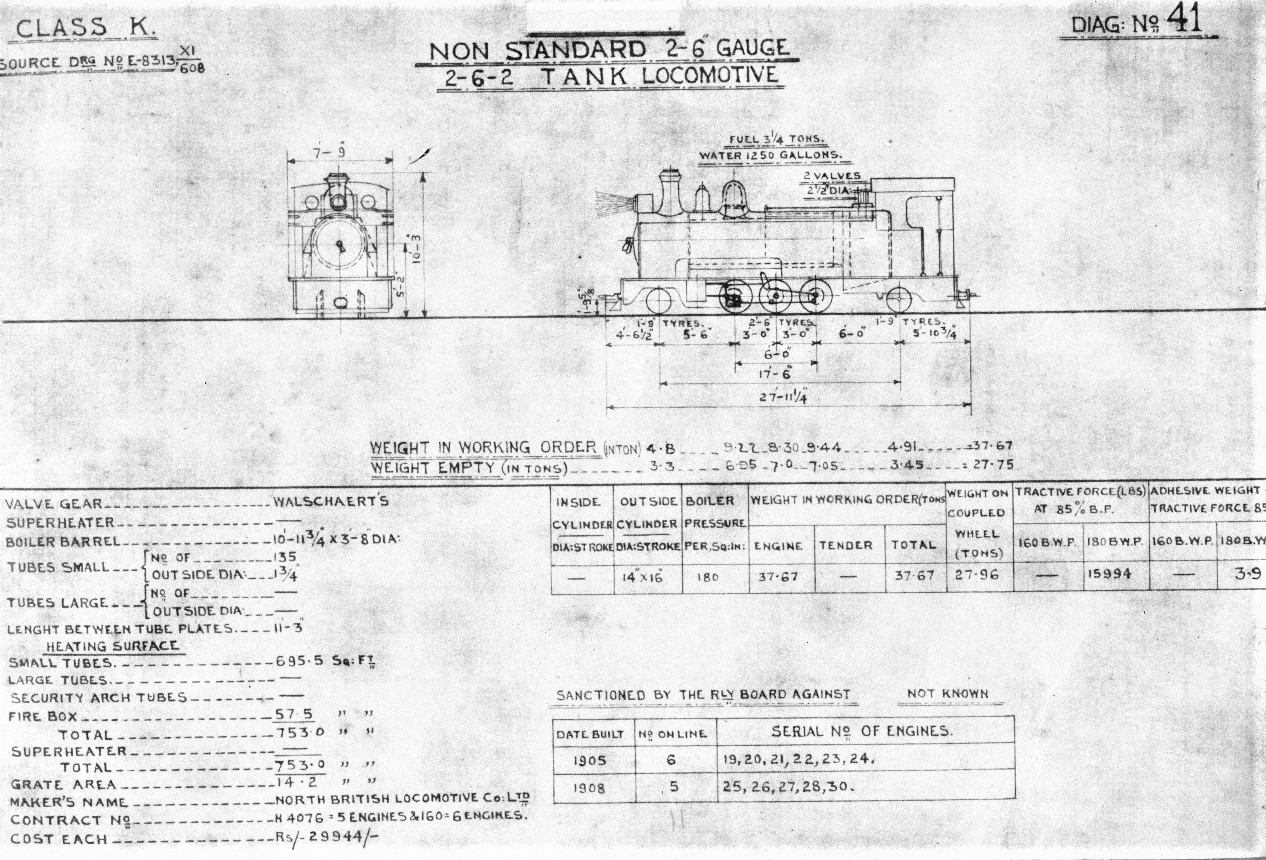 CLASS K.
SOURCE DRG No E-8313, XI/608
NON STANDARD 2'-6" GAUGE
2-6-2 TANK LOCOMOTIVE
DIAG: No 41
7'-9"
10'-3"
5'-2"
FUEL 3 1/4 TONS.
WATER 1250 GALLONS.
2 VALVES
2 1/2" DIA:
1'-9" TYRES. 2'-6" TYRES. 1'-9" TYRES.
4'-6 1/2" 5'-6" 3'-0" 3'-0" 6'-0" 5'-10 3/4"
6'-0"
17'-6"
27'-11 1/4"
WEIGHT IN WORKING ORDER (IN TON) 4.8 9.22 8.30 9.44 4.91 =37.67
WEIGHT EMPTY (IN TONS) 3.3 6.95 7.0 7.05 3.45 =27.75
VALVE GEAR WALSCHAERT'S
SUPERHEATER —
BOILER BARREL 10'-11 3/4" X 3'-8" DIA:
TUBES SMALL { No OF 135
OUTSIDE DIA: 1 3/4"
TUBES LARGE { No OF —
OUTSIDE DIA: —
LENGHT BETWEEN TUBE PLATES. 11'-3"
HEATING SURFACE
SMALL TUBES. 695.5 Sq: FT
LARGE TUBES. —
SECURITY ARCH TUBES —
FIRE BOX 57.5 " "
TOTAL 753.0 " "
SUPERHEATER —
TOTAL 753.0 " "
GRATE AREA 14.2 " "
MAKER'S NAME NORTH BRITISH LOCOMOTIVE Co: LTD
CONTRACT No H 4076 = 5 ENGINES & 160 = 6 ENGINES.
COST EACH Rs/- 29944/-
INSIDE CYLINDER DIA: STROKE
—
OUTSIDE CYLINDER DIA: STROKE
14" X 16"
BOILER PRESSURE PER, Sq: IN:
180
WEIGHT IN WORKING ORDER (TONS
ENGINE TENDER TOTAL
37.67 — 37.67
WEIGHT ON COUPLED WHEEL (TONS)
27.96
TRACTIVE FORCE (LBS) AT 85% B.P.
160 B.W.P. 180 B.W.P.
— 15994
ADHESIVE WEIGHT
TRACTIVE FORCE 85
160 B.W.P. 180 B.W
— 3.9
SANCTIONED BY THE RLY BOARD AGAINST NOT KNOWN
DATE BUILT No ON LINE SERIAL No OF ENGINES.
1905 6 19, 20, 21, 22, 23, 24.
1908 5 25, 26, 27, 28, 30.